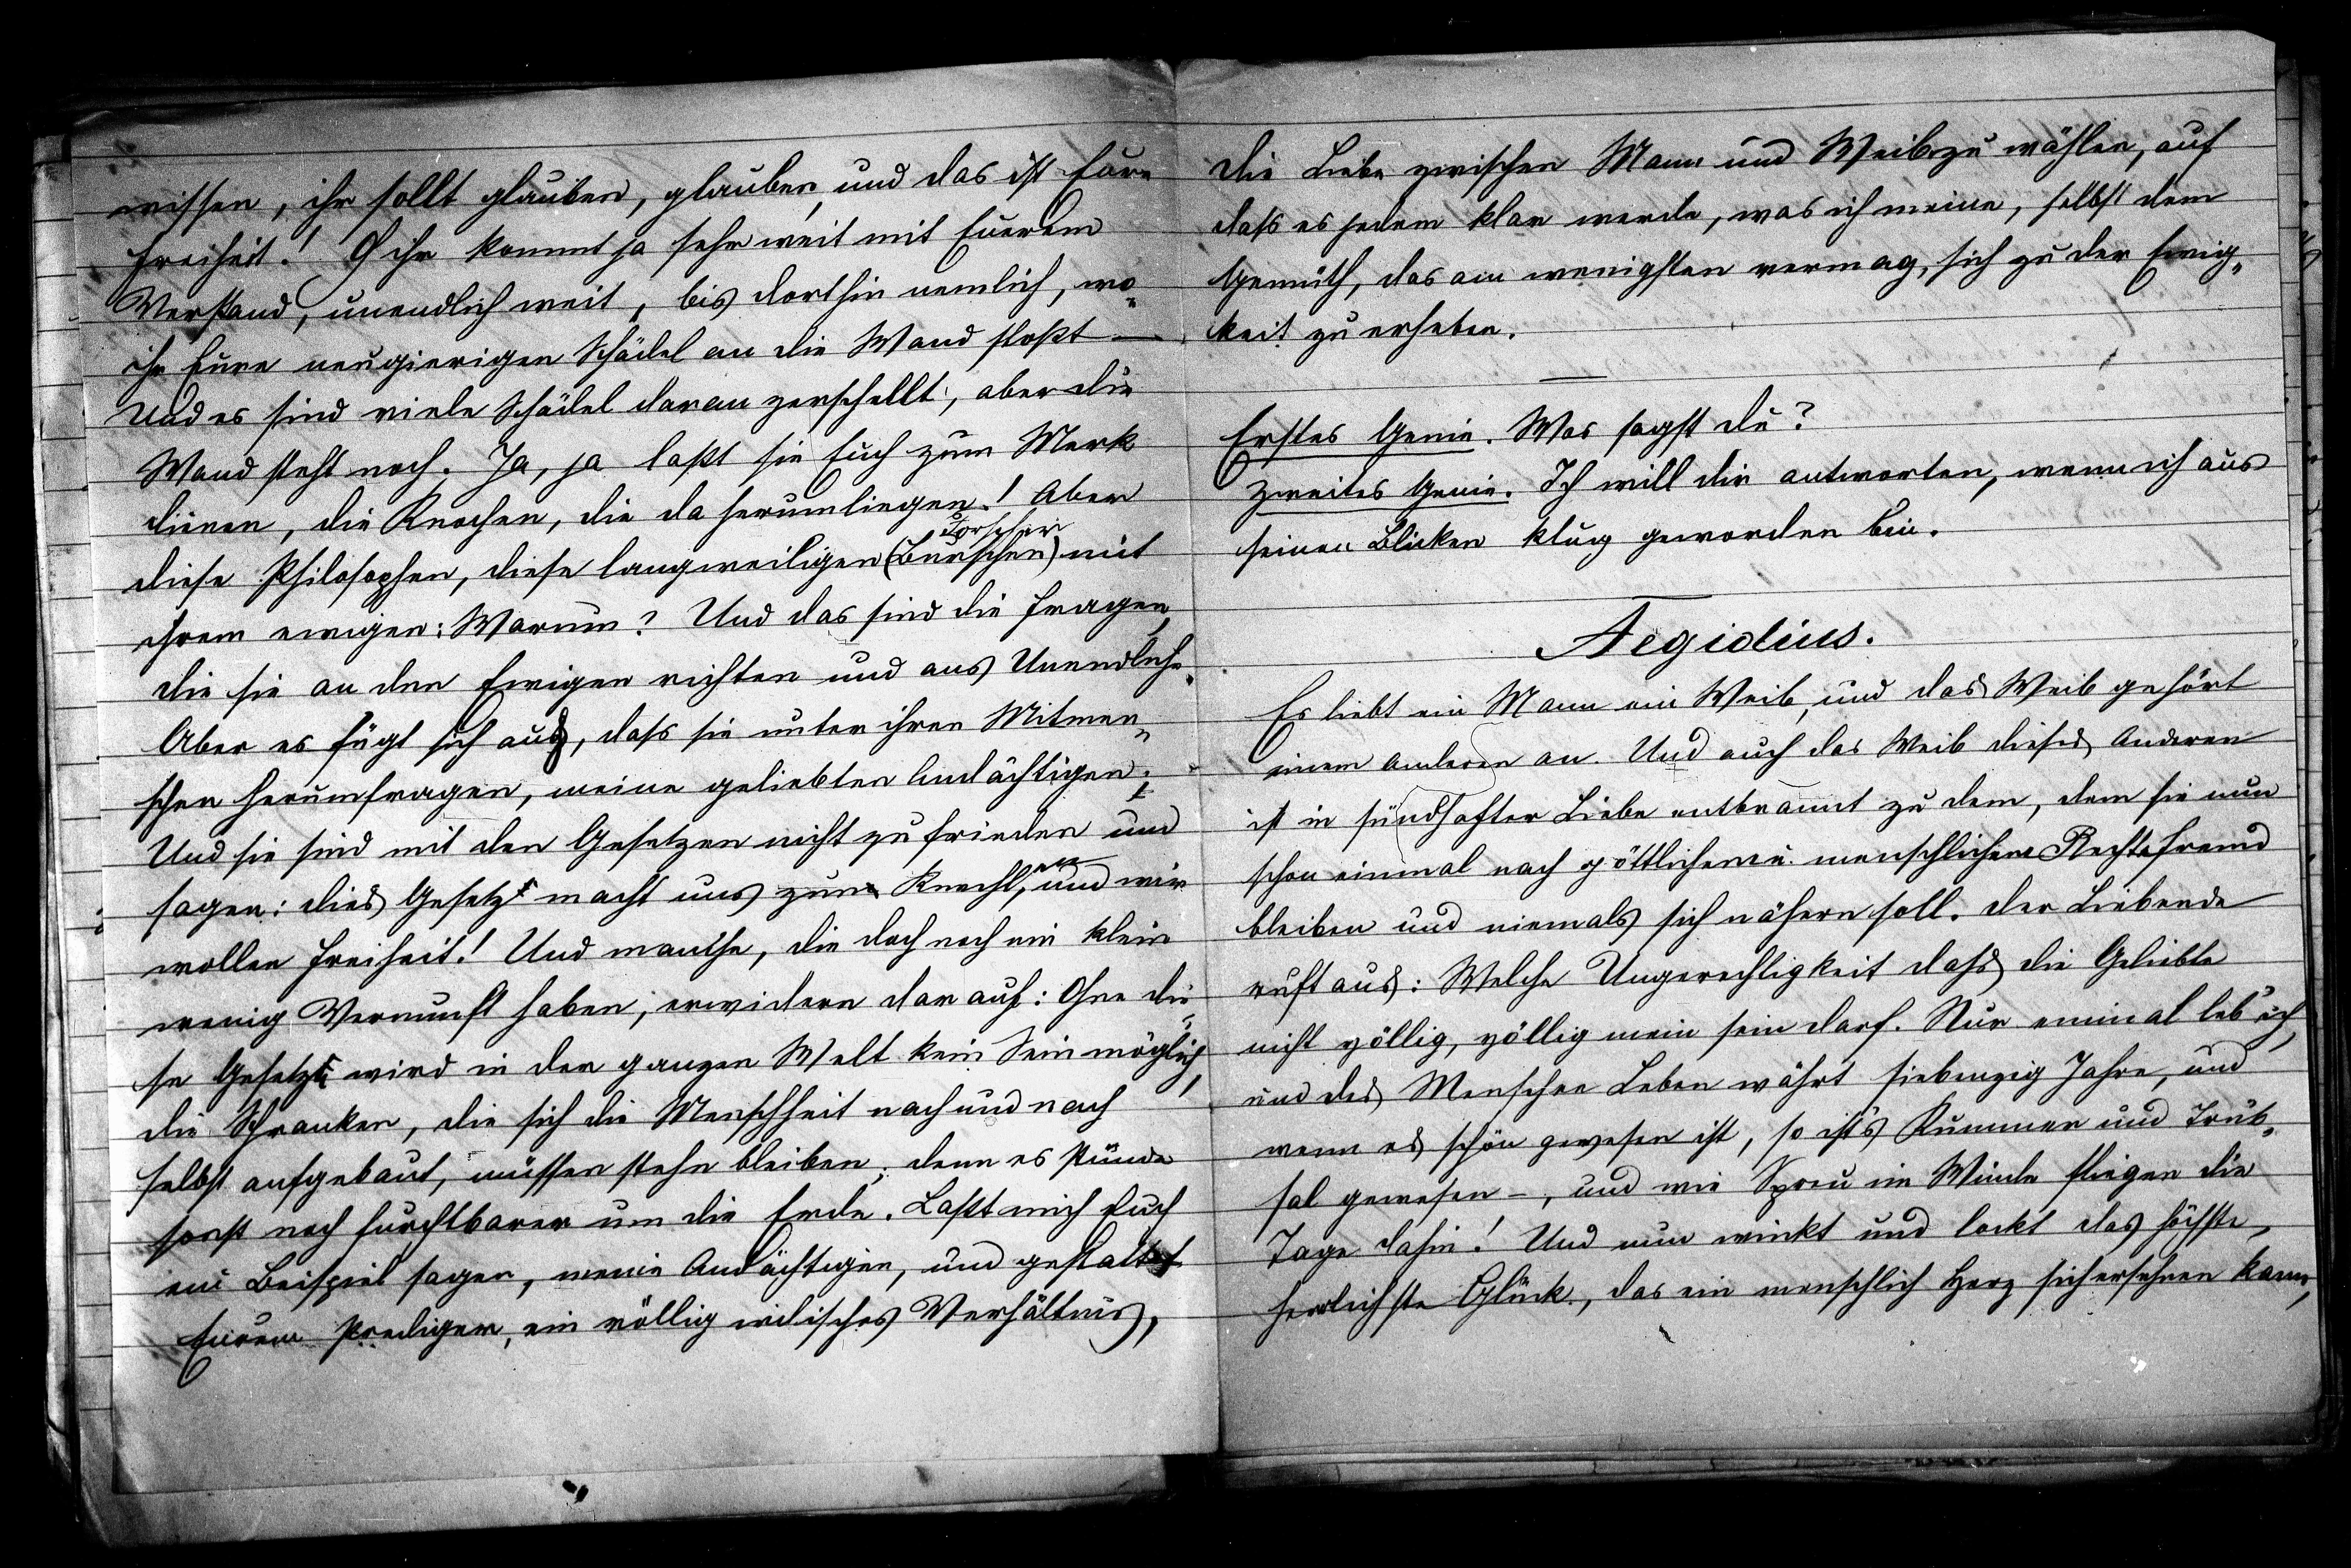 wissen, ihr sollt glauben, glauben, und das ist Eure
Freiheit! O ihr kommt ja sehr weit mit Euerem
Verstand, unendlich weit, bis dorthin nemlich, wo
ihr Eure neugierigen Schädel an die Wand stoßt —
Und es sind viele Schädel daran zerschellt, aber die
Wand steht noch. Ja, ja laßt sie Euch zum Merk
dienen, die Knochen, die da herumliegen! Aber
Forscher
diese Philosophen, diese langweiligen (Burschen) mit
ihrem ewigen: Warum? Und das sind die Fragen,
die sie an den Ewigen richten und ans Unendliche.
Aber es fügt sich auch, dass sie unter ihren Mitmen„
schen herumfragen, meine geliebten Andächtigen;
Und sie sind mit den Gesetzen nicht zufrieden und
sagen: dies Gesetz macht uns zum Knecht, und wir
wollen Freiheit! Und manche, die doch noch ein klein
wenig Vernunft haben, erwidern darauf: Ohne die„
se Gesetze wird in der ganzen Welt kein Sein möglich,
die Schranken, die sich die Menschheit nach und nach
selbst aufgebaut, müssen stehn bleiben; denn es stünde
sonst noch furchtbarer um die Erde. Laßt mich Euch
ein Beispiel sagen, meine Andächtigen, und gestattet
Eurem Prediger, ein völlig irdisches Verhältnis,
die Liebe zwischen Mann und Weib zu wählen, auf
dass es jedem klar werde, was ich meine, selbst dem
Gemüth, das am wenigsten vermag, sich zu der Ewig„
keit zu erheben.
Erstes Genie. Was sagst du?
Zweites Genie. Ich will dir antworten, wenn ich aus
seinen Blicken klug geworden bin.
Aegidius.
Es liebt ein Mann ein Weib, und das Weib gehört
einem anderen an. Und auch das Weib dieses Anderen
ist in sündhafter Liebe entbrannt zu dem, dem sie nun
schon einmal nach göttlichem u. menschlichem Rechte fremd
bleiben und niemals sich nähern soll. Der Liebende
ruft aus: Welche Ungerechtigkeit dass die Geliebte
nicht völlig, völlig mein sein darf. Nur einmal leb' ich,
und des Menschen Leben währt siebenzig Jahre, und
wenn es schön gewesen ist, so ist's Kummer und Trüb„
sal gewesen –, und wie Spreu im Winde fliegen die
Tage dahin! Und nun winkt und lockt das höchste,
herrlichste Glück, das ein menschlich Herz sich ersehnen kann,